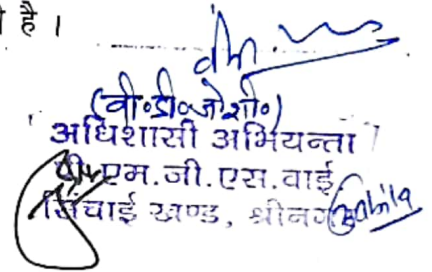 है ।
(वी०डी०जोशी०)
अधिशासी अभियन्ता
पी.एम.जी.एस.वाई
सिंचाई खण्ड, श्रीनगर